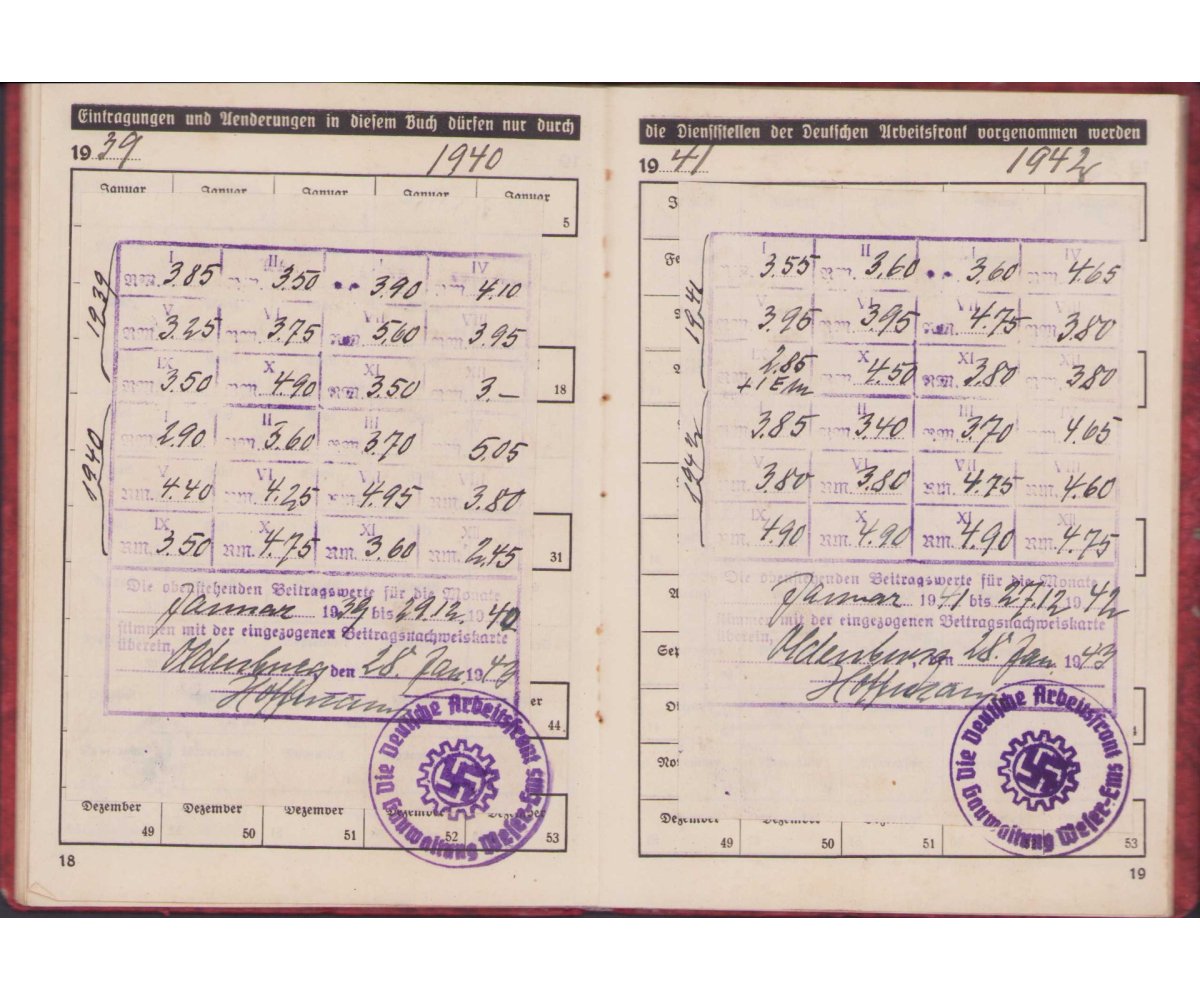 Eintragungen und Aenderungen in diesem Buch dürfen nur durch
1939 1940
Januar Januar Januar Januar Januar
5
1939
I II IV
3.85 3.50 3.90 4.10
V VI VII VIII
3.25 3.75 5.60 3.95
IX X XI XII
3.50 4.90 3.50 3.— 18
1940
II III
2.90 3.60 3.70 5.05
V VI
RM. 4.40 4.25 4.95 3.80
IX X XI
RM. 3.50 RM. 4.75 RM. 3.60 RM. 2.45 31
Die obenstehenden Beitragswerte für die Monate
Januar 1939 bis 29.12. 1940
stimmen mit der eingezogenen Beitragsnachweiskarte
überein,
Oldenburg den 28. Jan 1943
Hoffmann
er
44
Die Deutsche Arbeitsfront
Gauwaltung Weser-Ems
Dezember Dezember Dezember Dezember Dezember
49 50 51 52 53
18
die Dienststellen der Deutschen Arbeitsfront vorgenommen werden
1941 1942
1941
I II I IV
3.55 3.60 3.60 4.65
3.95 3.95 4.75 3.80
2.85 X XI XII
+1 Em 4.50 3.80 3.80
1942
II III
3.85 3.40 3.70 4.65
V VI VII VIII
3.80 3.80 4.75 4.60
IX X XI XII
4.90 4.90 4.90 4.75
Die obenstehenden Beitragswerte für die Monate
Januar 1941 bis 27.12 1942
stimmen mit der eingezogenen Beitragsnachweiskarte
überein,
Oldenburg den 28. Jan. 1943
Hoffmann
Die Deutsche Arbeitsfront
Gauwaltung Weser-Ems
Dezember Dezember
49 50 51 53
19